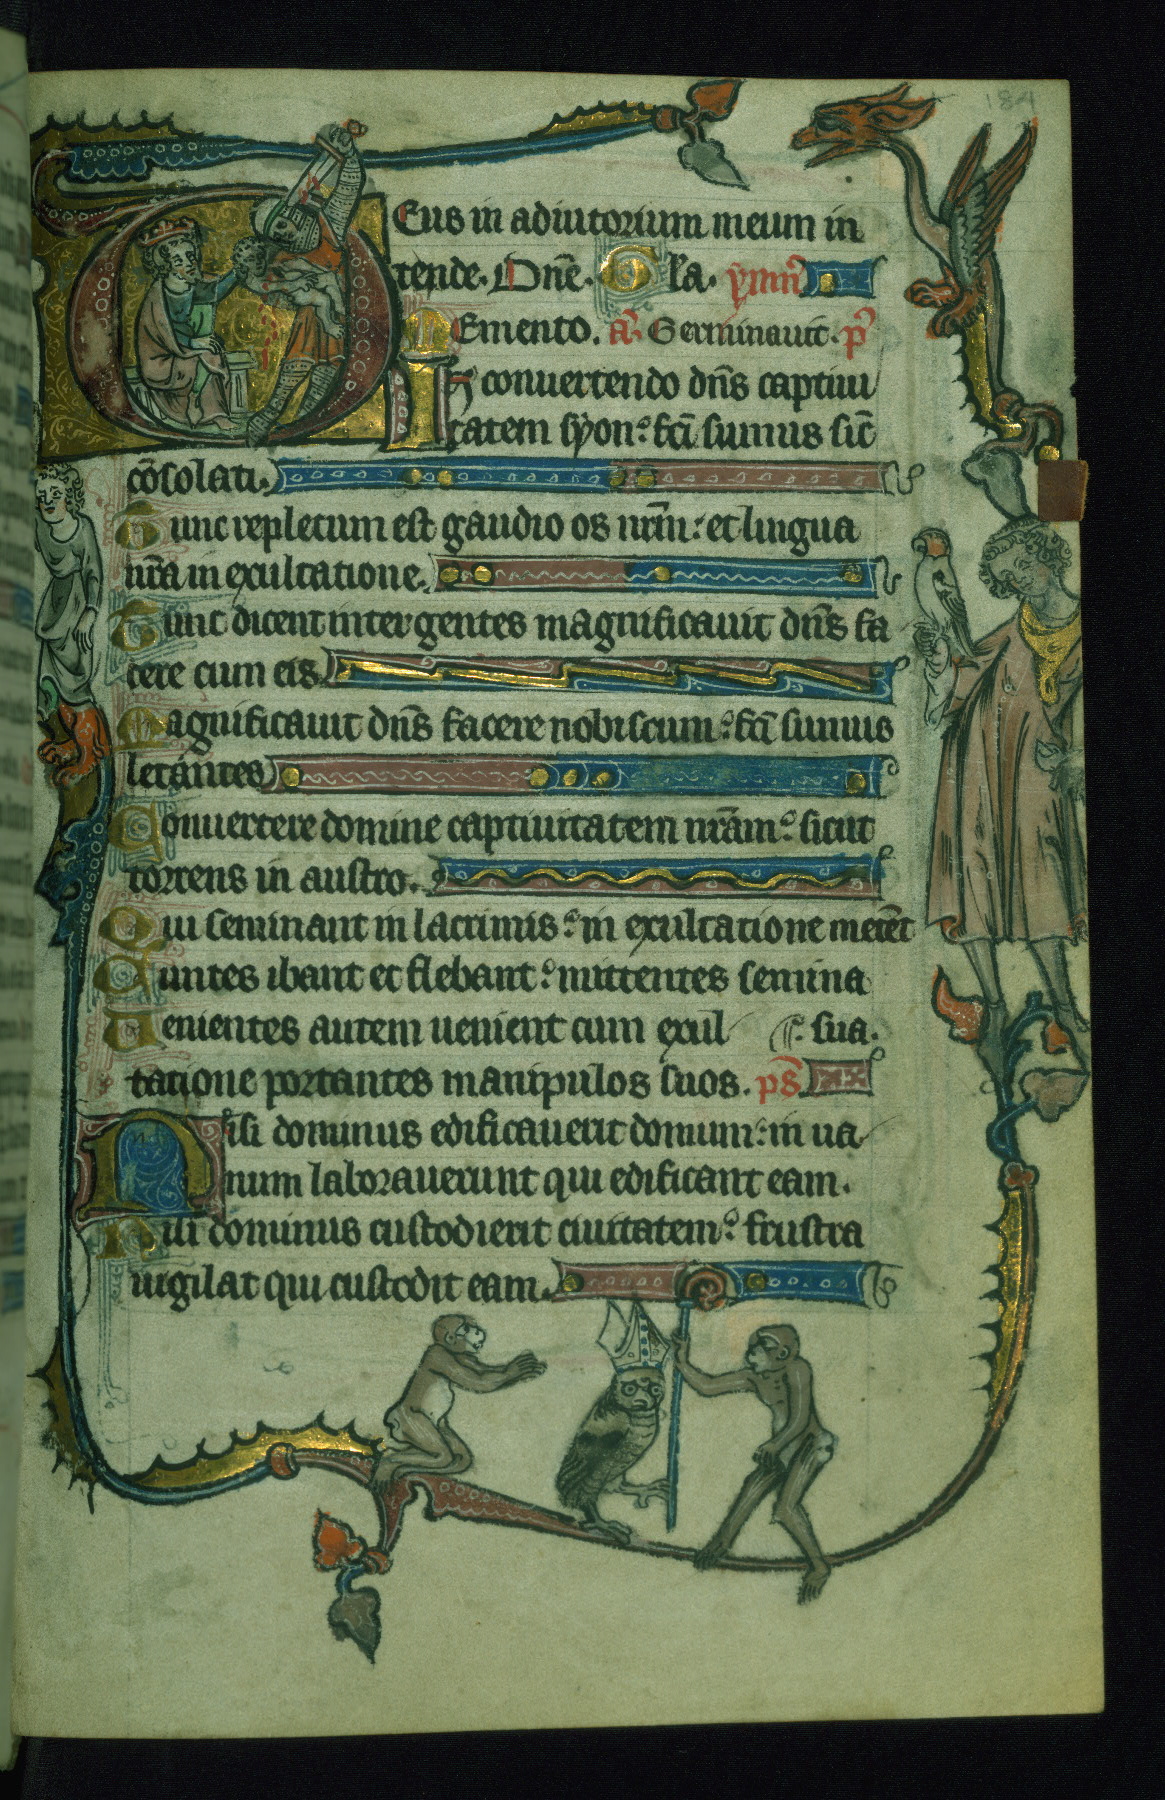 184
Eus in adiutorium meum in
tende. Dn̄e. Gl'a. ẏmn9
Memento. an̄. Germinauit. p̄s
In conuertendo dn̄s captiui
tatem syon: fc̄i sumus sic̄
cōsolati.
Tunc repletum est gaudio os nr̄m: et lingua
nr̄a in exultatione.
Tunc dicent inter gentes magnificauit dn̄s fa
cere cum eis.
Magnificauit dn̄s facere nobiscum: fc̄i sumus
letantes
Conuertere domine captiuitatem nr̄am: sicut
torrens in austro.
Qui seminant in lacrimis: in exultatione metēt
Euntes ibant et flebant: mittentes semina
Uenientes autem uenient cum exul sua.
tatione portantes manipulos suos. ps̄
Nisi dominus edificauerit domum: in ua
num laborauerunt qui edificant eam.
Nisi dominus custodierit ciuitatem: frustra
uigilat qui custodit eam.